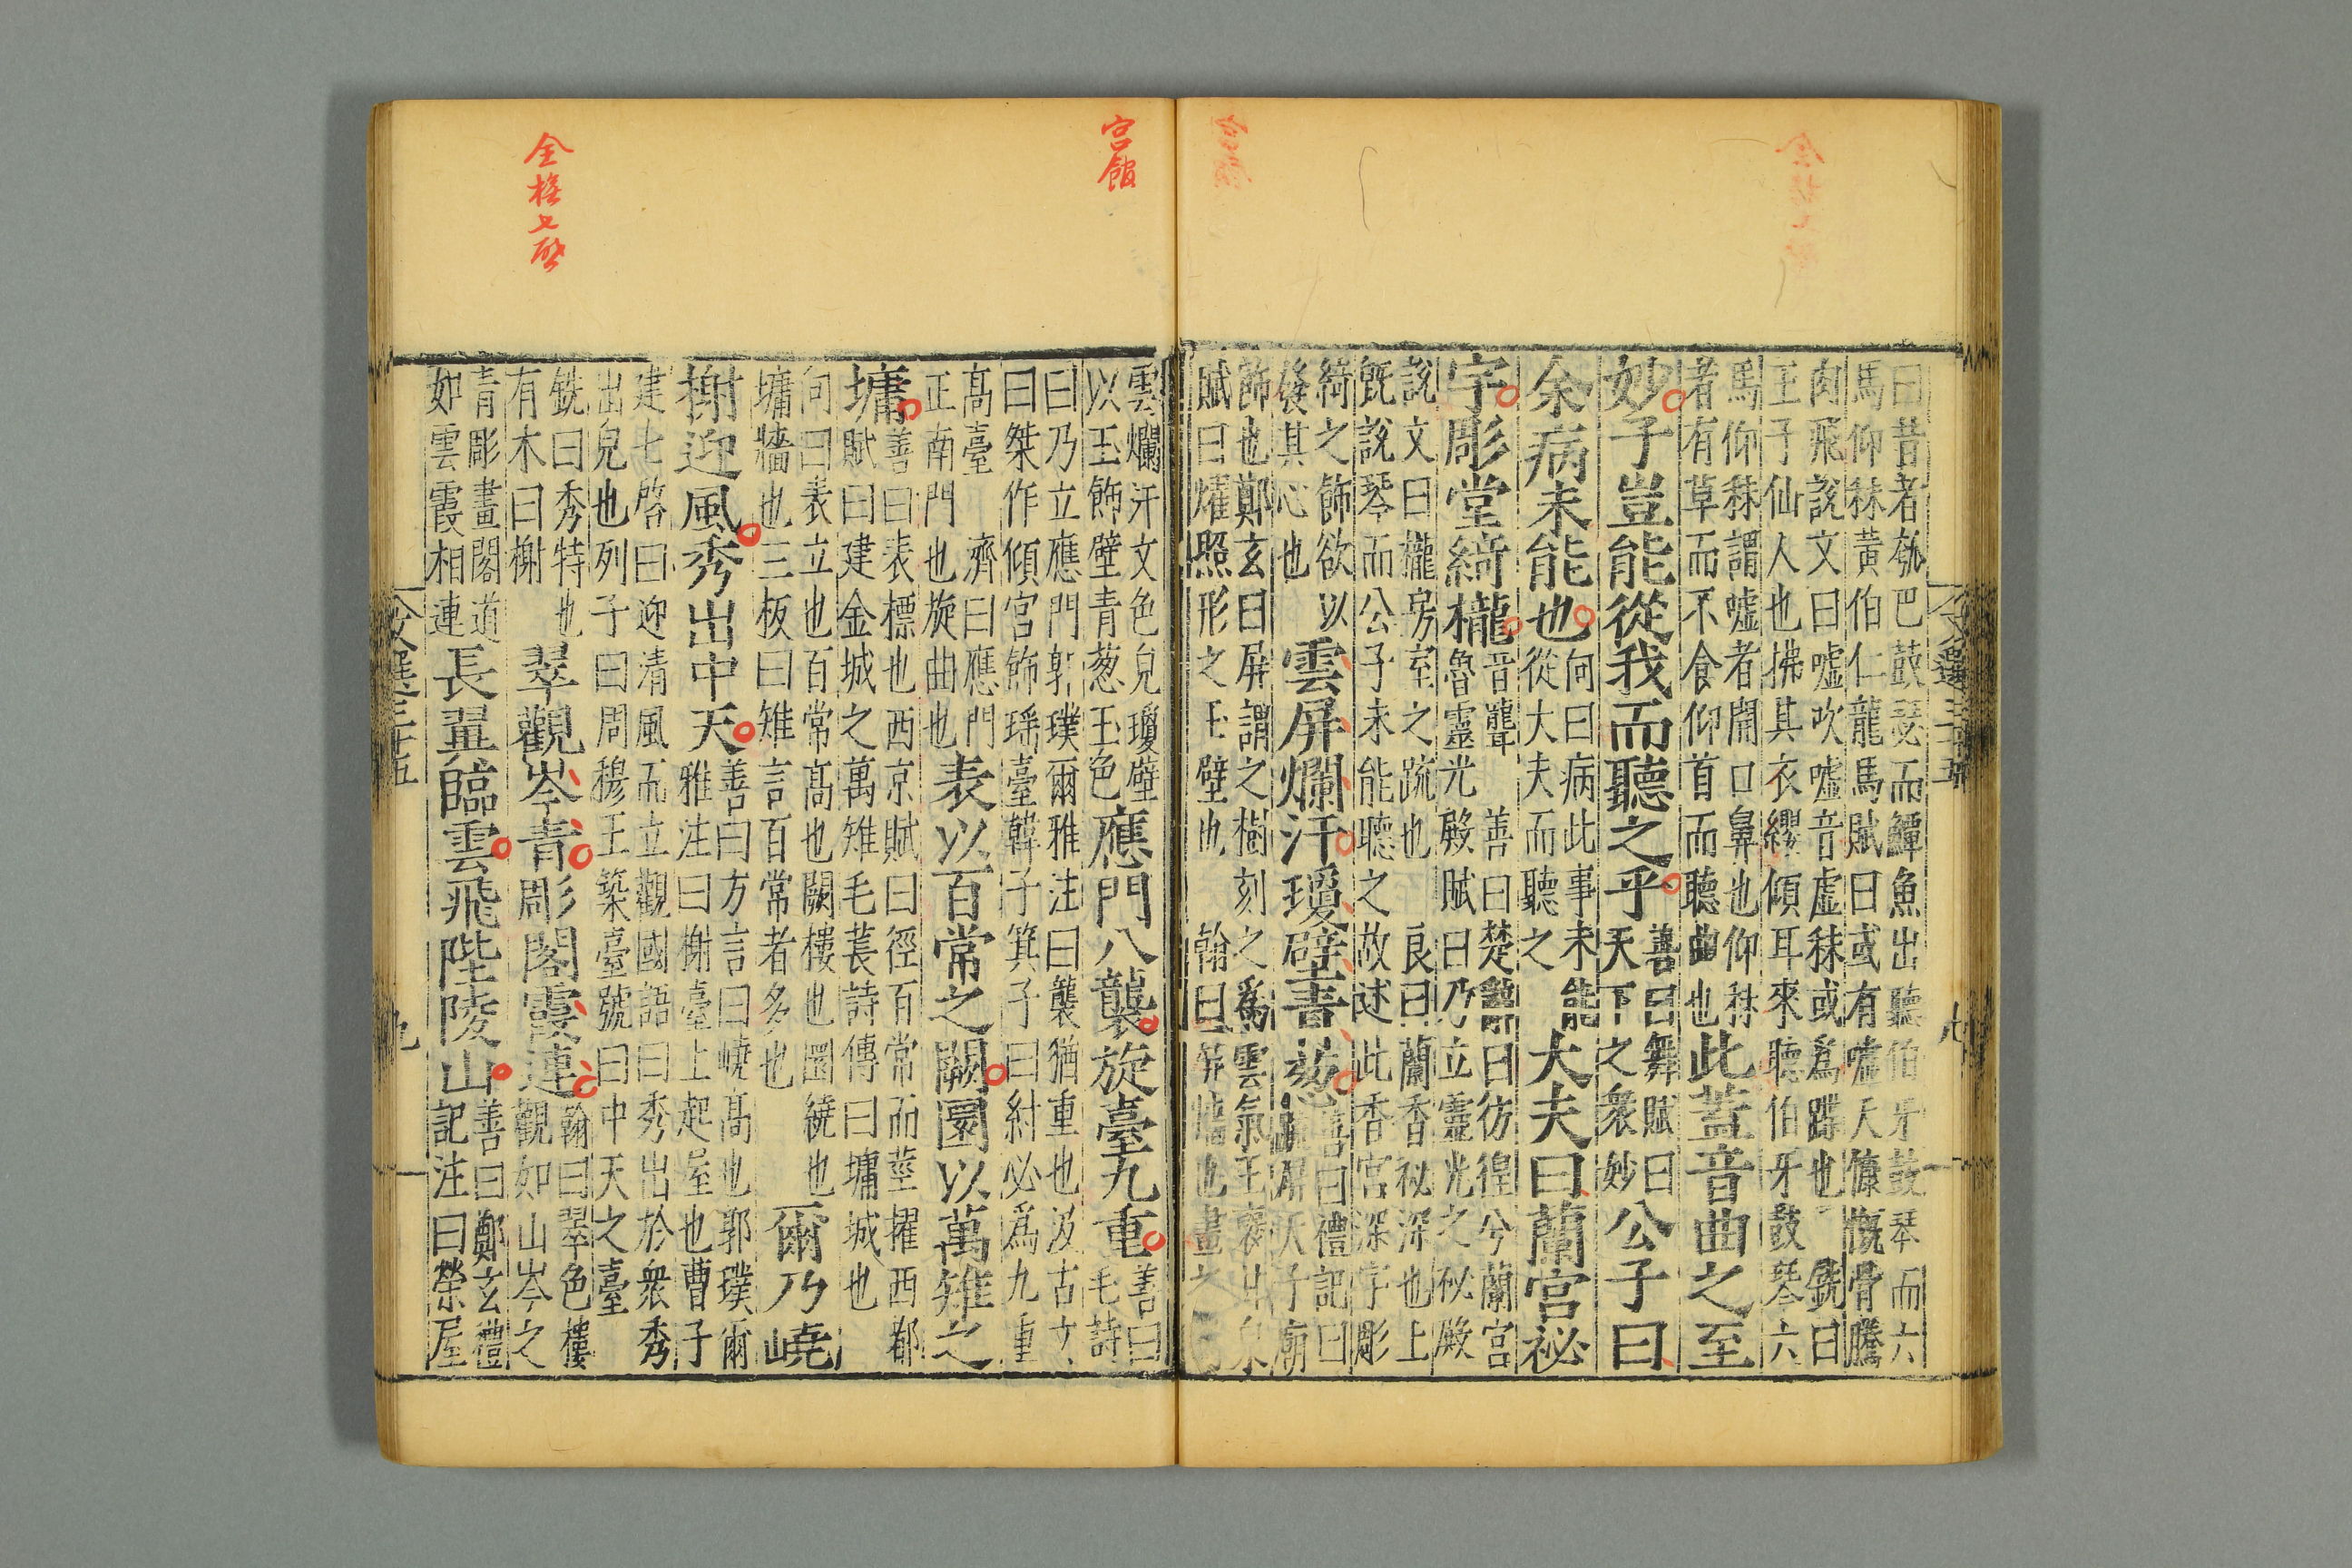 曰昔者瓠巴鼓瑟而鱏魚出聽伯牙鼓琴而六
馬仰秣黃伯仁龍馬賦曰或有噓天慷慨骨騰
肉飛說文曰噓吹噓音虛秣或爲蹀也 銑曰
王子仙人也拂其衣纓傾耳來聽伯牙鼓琴六
馬仰秣謂噓者開口鼻也仰秣
者有草而不食仰首而聽曲也此蓋音曲之至
妙子豈能從我而聽之乎善曰舞賦曰
天下之衆妙公子曰
余病未能也何曰病此事未能
從大夫而聽之大夫曰蘭宮祕
宇彫堂綺櫳音聾 善曰楚辭曰彷徨兮蘭宮
魯靈光殿賦曰乃立靈光之祕殿
說文曰櫳房室之疏也 良曰蘭香祕深也上
旣說琴而公子未能聽之故述此香宮深宇彫
綺之飾欲以
發其心也雲屏爛汗瓊壁青葱善曰禮記曰
屏天子廟
飾也鄭玄曰屏謂之樹刻之爲雲氣
賦曰燿照形之玉壁也 翰曰屏牆也畫之
宮館
雲爛汗文色皃瓊壁
以玉飾壁青葱玉色應門八襲旋臺九重善曰
毛詩
曰乃立應門郭璞爾雅注曰襲猶重也汲古文
曰桀作傾宮飾瑤臺韓子箕子曰紂必爲九重
高臺 濟曰應門
正南門也旋曲也表以百常之闕圜以萬雉之
墉善曰表標也西京賦曰徑百常而莖擢西都
賦曰建金城之萬雉毛萇詩傳曰墉城也
向曰表立也百常高也闕樓也圜繞也
墉牆也三板曰雉言百常者多也爾乃嶢
榭迎風秀出中天善曰方言曰嶢高也郭璞爾
雅注曰榭臺上起屋也曹子
建七啓曰迎清風而立觀國語曰秀出於衆秀
出皃也列子曰周穆王築臺號曰中天之臺
銑曰秀特也
有木曰榭翠觀岑青彫閣霞連翰曰翠色樓
觀如山岑之
青彫畫閣道
如雲霞相連長翼臨雲飛陛陵山善曰鄭玄禮
記注曰榮屋
文選三十五
九